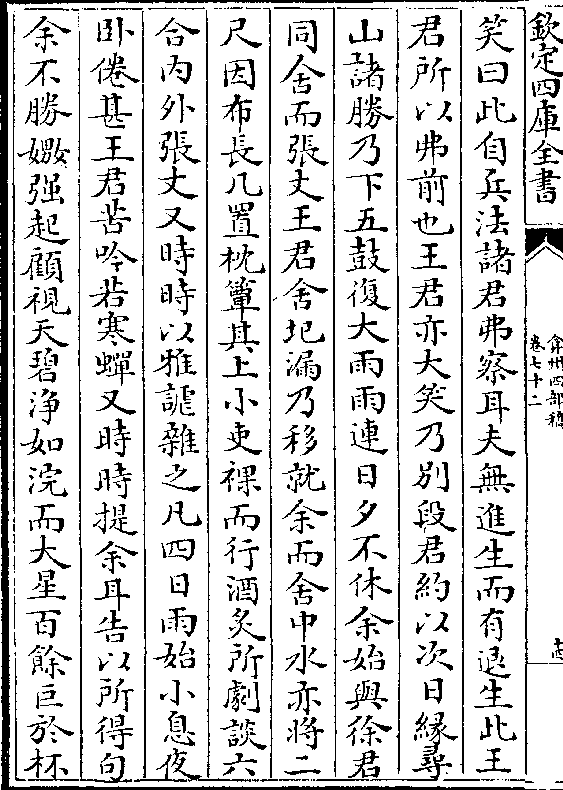 欽定四庫全書
弇州四部稿
卷七十二
十四
笑曰此自兵法諸君弗察耳夫無進生而有退生此王
君所以弗前也王君亦大笑乃別段君約以次日緣尋
山諸勝乃下五鼓復大雨雨連日夕不休余始與徐君
同舍而張丈王君舍圮漏乃移就余而舍中水亦將二
尺因布長几置枕簟其上小吏裸而行酒炙所劇談六
合內外張丈又時時以雅謔雜之凡四日雨始小息夜
卧倦甚王君苦吟若寒蟬又時時提余耳告以所得句
余不勝嬲强起顧視天碧淨如浣而大星百餘巨於杯